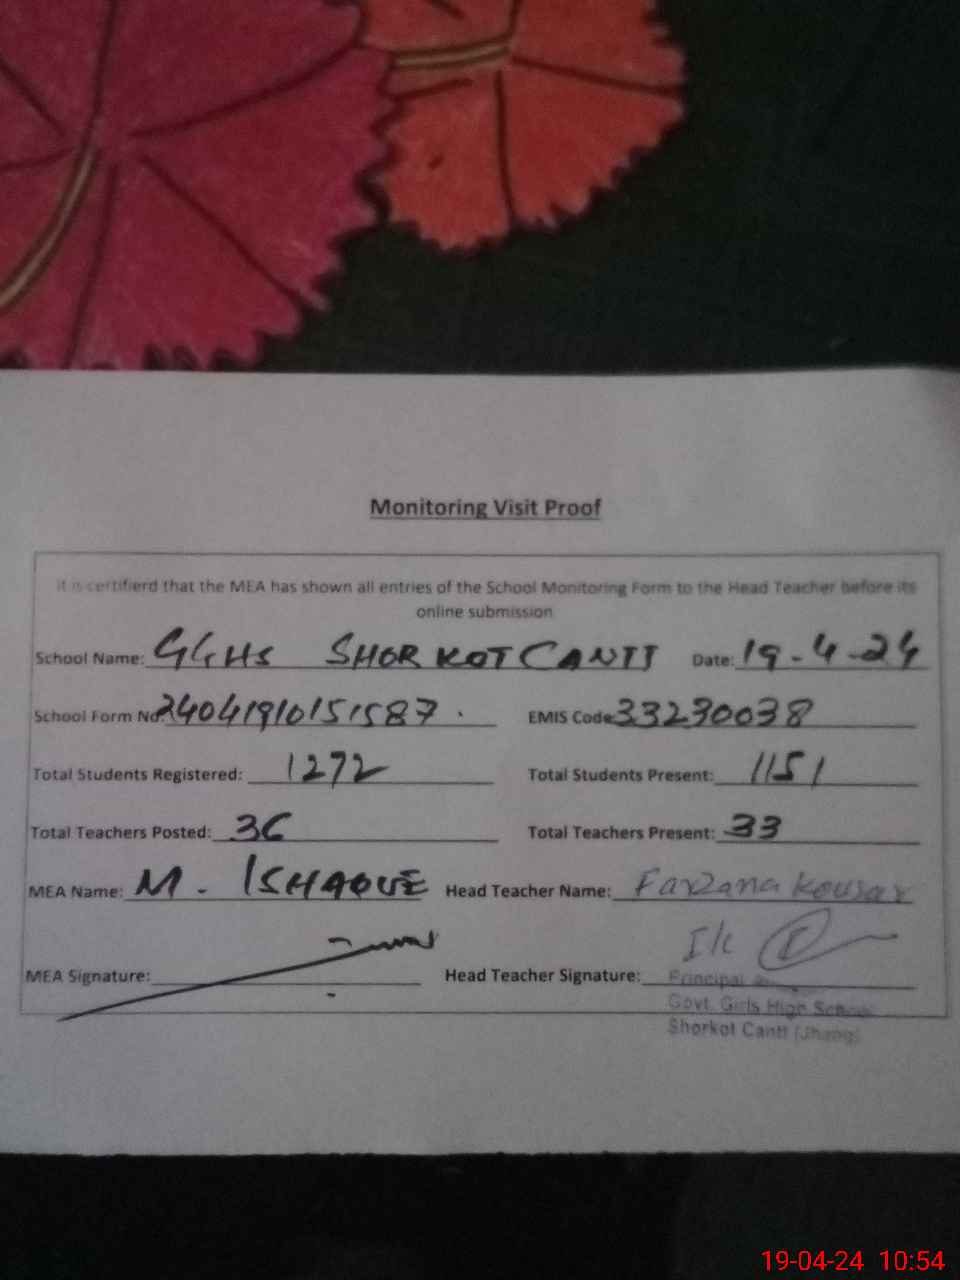 Monitoring Visit Proof
It is certifierd that the MEA has shown all entries of the School Monitoring Form to the Head Teacher before its
online submission
School Name: GGHS SHORKOT CANTT Date: 19-4-24
School Form No: 24041910151587 EMIS Code: 33230038
Total Students Registered: 1272 Total Students Present: 1151
Total Teachers Posted: 36 Total Teachers Present: 33
MEA Name: M. ISHAQUE Head Teacher Name: Farzana Kousar
I/c
MEA Signature: Head Teacher Signature:
Principal
Govt. Girls High School
Shorkot Cantt (Jhang)
19-04-24 10:54